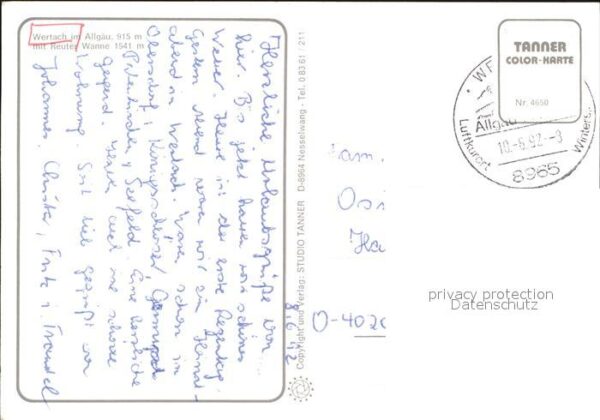 Wertach im Allgäu, 915 m
mit Reuter Wanne 1541 m
8.6.92
Herzliche Urlaubsgrüße von
hier. Bis jetzt haben wir schönes
Wetter. Heute ist der erste Regentag.
Gestern Abend waren wir ein Heimat-
abend in Wertach. Waren schon in
Oberstdorf, Königsschlösser,
Seefeld. Eine herrliche
Gegend. Haben auch eine schöne
Wohnung. Seid lieb gegrüßt von
Johannes, Christa, Fritz u. Traudel
Copyright und Verlag: STUDIO TANNER D-8964 Nesselwang - Tel. 0 83 61 / 211
TANNER
COLOR-KARTE
Nr. 4650
Allgäu
Luftkurort
Winters
10.-6.92.-9
8965
Fam.
O-402
privacy protection
Datenschutz